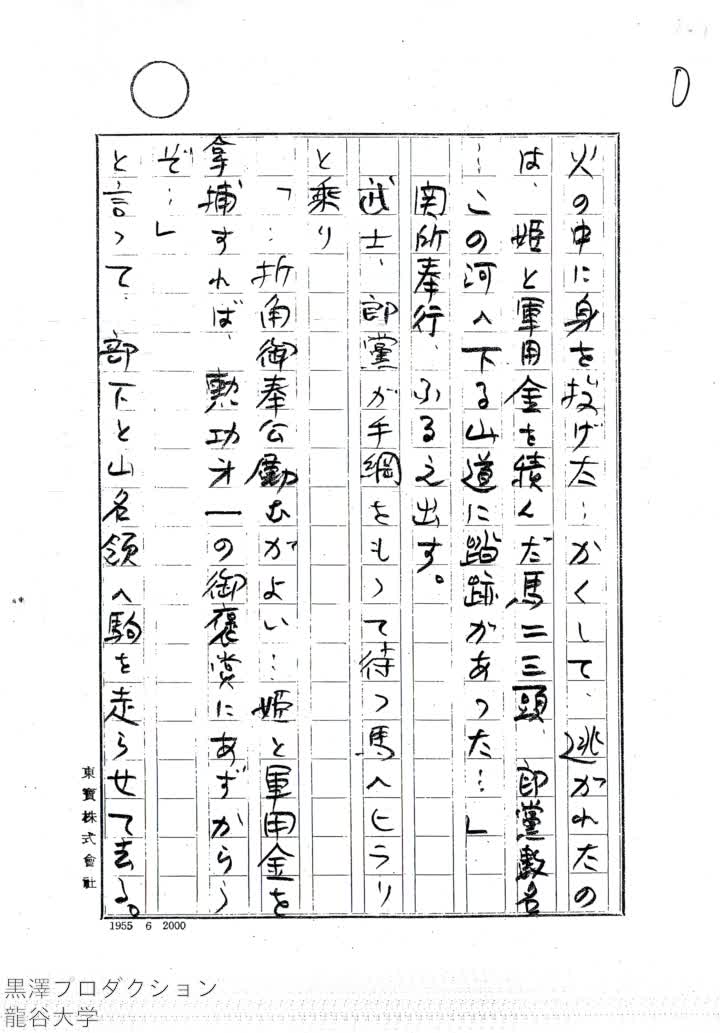 D
火の中に身を投げた…かくして、逃がれたの
は、姫と軍用金を積んだ馬二三頭、郎党数名
…この河へ下る山道に踏跡があった…」
関所奉行、ふるえ出す。
武士、郎党が手綱をもって待つ馬へヒラリ
と乗り
「…折角御奉公励むがよい…姫と軍用金を
拿捕すれば、勲功才一の御褒賞にあずからう
ぞ…」
と言って、部下と山名領へ駒を走らせて去る。
東寳株式會社
1955 6 2000
黒澤プロダクション
龍谷大学